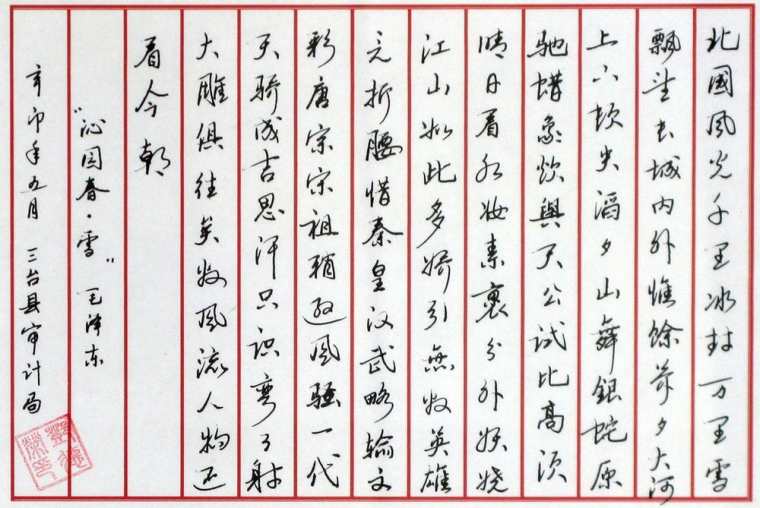 北國風光千里冰封万里雪
飘望长城内外惟餘莽々大河
上下顿失滔々山舞銀蛇原
驰蜡象欲與天公试比高须
晴日看红妆素裹分外妖娆
江山如此多娇引無数英雄
竞折腰惜秦皇汉武略输文
彩唐宗宋祖稍逊风骚一代
天骄成吉思汗只识弯弓射
大雕俱往矣数风流人物还
看今朝
"沁园春·雪" 毛泽东
辛卯年五月 三台县审计局